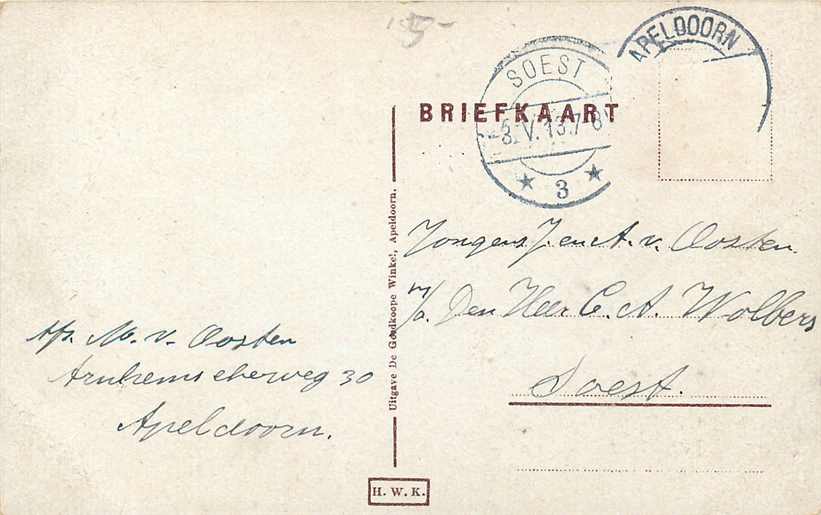 15-
APELDOORN
SOEST
-3.V.13.7-8
3
BRIEFKAART
Jongens J. en A. v. Oosten.
p/a. Den Heer C. A. Wolbers
Soest.
Uitgave De Goedkoope Winkel, Apeldoorn.
Afz. M. v. Oosten
Arnhemscheweg 30
Apeldoorn.
H. W. K.